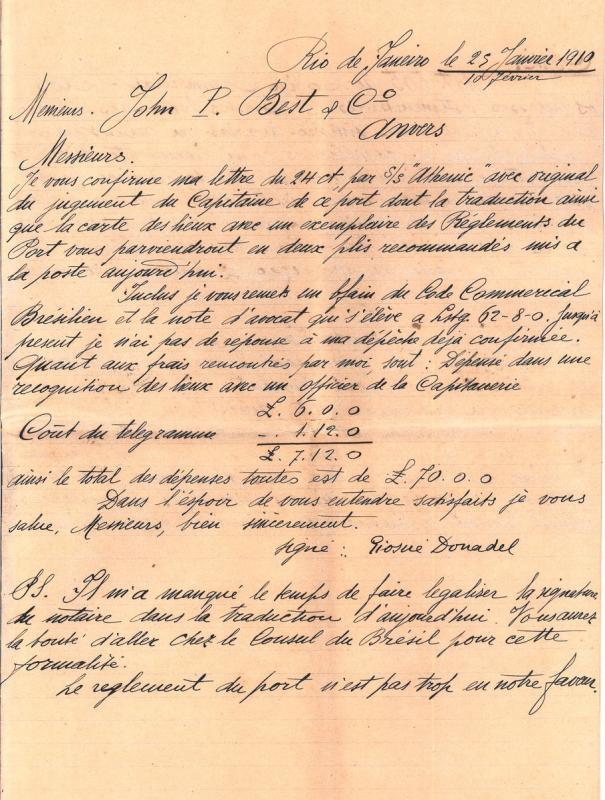 Rio de Janeiro le 25 Janvier 1910
12 Février
Messieurs. John P. Best & Cº
Anvers
Messieurs.
Je vous confirme ma lettre du 24 ct. par S/S "Athenic" avec original
du jugement du Capitaine de ce port dont la traduction ainsi
que la carte des lieux avec un exemplaire des Réglements du
Port vous parviendront en deux plis recommandés mis a
la poste aujourd'hui.
Inclus je vous remets un du Code Commerical
Brésilien et la note d'avocat qui s'élève a Lstg. 62-8-0. jusqu'à
present je n'ai pas de réponse à ma dépêche déjà confirmée.
Quant aux frais rencontrés par moi, sont : Dépensé dans une
recognition des lieux avec un officier de la Capitanerie
£. 6.0.0
Coût du telegramme -. 1.12.0
£. 7.12.0
ainsi le total des dépenses toutes est de £. 70.0.0
Dans l'éspoir de vous entendre satisfaits je vous
salue, Messieurs, bien sincèrement.
signé : Giosuè Donadel
PS. Il m'a manqué le temps de faire legaliser la signature
du notaire dans la traduction d'aujourd'hui. Vous aurez
la bonté d'aller chez le Consul du Brésil pour cette
formalité.
Le reglement du port n'est pas trop en notre faveur.